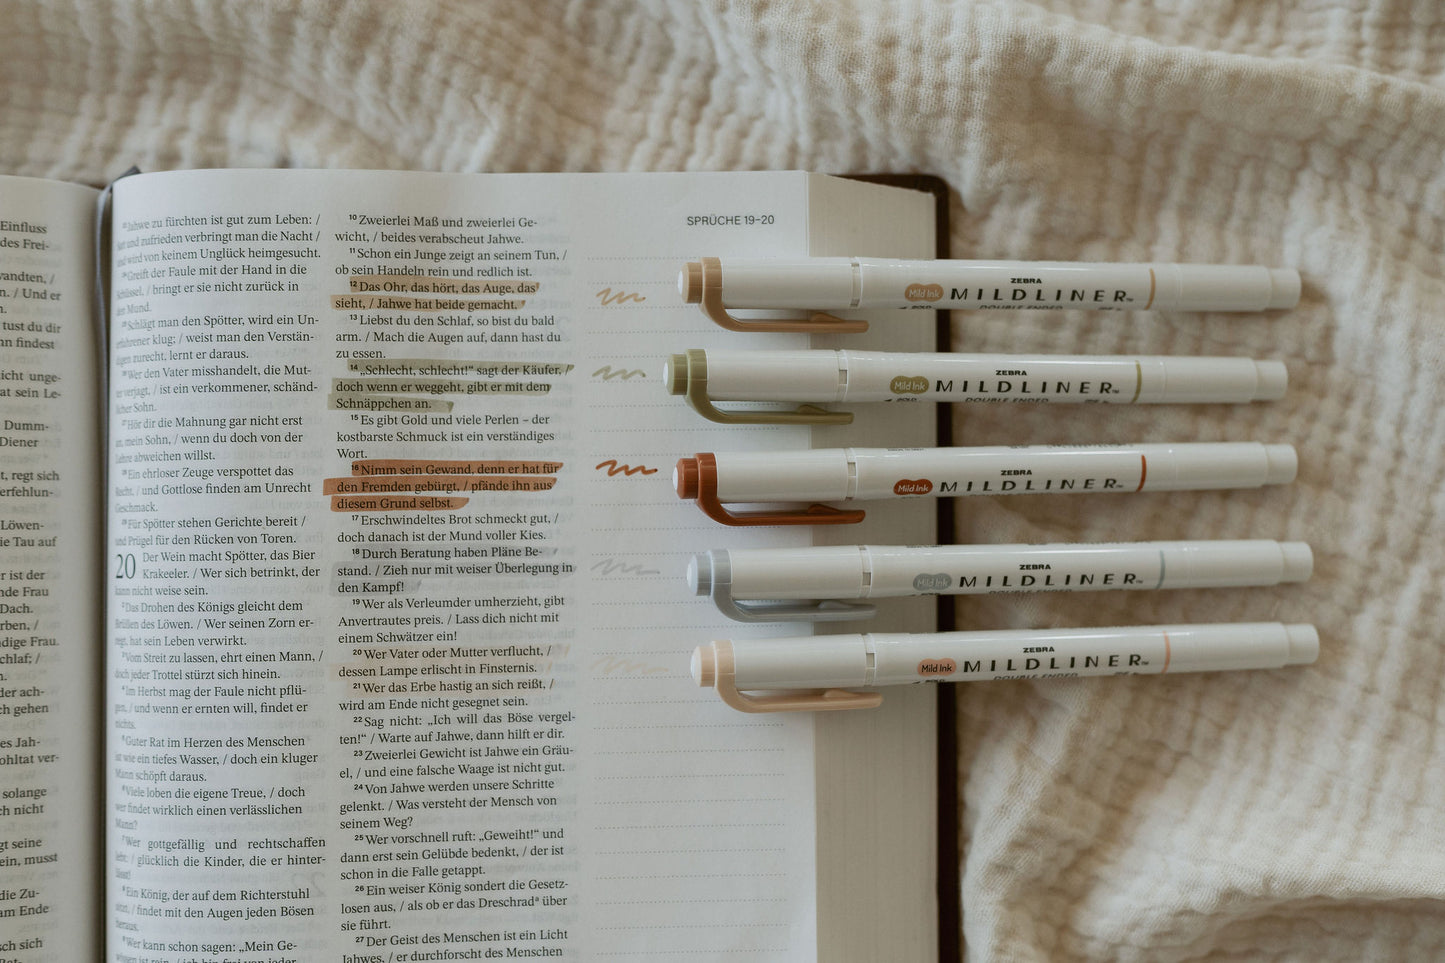 Einfluss
des Frei-
wandten, /
n. / Und er
n.
tust du dir
nn findest
icht unge-
at sein Le-
Dumm-
Diener
t, regt sich
erfehlun-
Löwen-
ie Tau auf
er ist der
nde Frau
Dach.
rben, /
ndige Frau.
chlaf; /
n.
der ach-
ch gehen
es Jah-
ohltat ver-
solange
ch nicht
gt seine
ein, musst
die Zu-
am Ende
sch sich
Jahwe zu fürchten ist gut zum Leben: /
und zufrieden verbringt man die Nacht /
wird von keinem Unglück heimgesucht.
Greift der Faule mit der Hand in die
Schüssel, / bringt er sie nicht zurück in
der Mund.
Schlägt man den Spötter, wird ein Un-
erfahrener klug; / weist man den Verstän-
digen zurecht, lernt er daraus.
Wer den Vater misshandelt, die Mut-
ter verjagt, / ist ein verkommener, schänd-
licher Sohn.
Hör dir die Mahnung gar nicht erst
an, mein Sohn, / wenn du doch von der
Lehre abweichen willst.
Ein ehrloser Zeuge verspottet das
Recht, / und Gottlose finden am Unrecht
Geschmack.
Für Spötter stehen Gerichte bereit /
und Prügel für den Rücken von Toren.
20 Der Wein macht Spötter, das Bier
Krakeeler. / Wer sich betrinkt, der
kann nicht weise sein.
2 Das Drohen des Königs gleicht dem
Brüllen des Löwen. / Wer seinen Zorn er-
regt, hat sein Leben verwirkt.
3 Vom Streit zu lassen, ehrt einen Mann, /
doch jeder Trottel stürzt sich hinein.
4 Im Herbst mag der Faule nicht pflü-
gen, / und wenn er ernten will, findet er
nichts.
5 Guter Rat im Herzen des Menschen
ist wie ein tiefes Wasser, / doch ein kluger
Mann schöpft daraus.
6 Viele loben die eigene Treue, / doch
wer findet wirklich einen verlässlichen
Mann?
7 Wer gottgefällig und rechtschaffen
lebt: / glücklich die Kinder, die er hinter-
lässt!
8 Ein König, der auf dem Richterstuhl
sitzt, / findet mit den Augen jeden Bösen
heraus.
9 Wer kann schon sagen: „Mein Ge-
wissen ist rein, / ich bin frei von jeder
10 Zweierlei Maß und zweierlei Ge-
wicht, / beides verabscheut Jahwe.
11 Schon ein Junge zeigt an seinem Tun, /
ob sein Handeln rein und redlich ist.
12 Das Ohr, das hört, das Auge, das
sieht, / Jahwe hat beide gemacht.
13 Liebst du den Schlaf, so bist du bald
arm. / Mach die Augen auf, dann hast du
zu essen.
14 „Schlecht, schlecht!“ sagt der Käufer, /
doch wenn er weggeht, gibt er mit dem
Schnäppchen an.
15 Es gibt Gold und viele Perlen – der
kostbarste Schmuck ist ein verständiges
Wort.
16 Nimm sein Gewand, denn er hat für
den Fremden gebürgt, / pfände ihn aus
diesem Grund selbst.
17 Erschwindeltes Brot schmeckt gut, /
doch danach ist der Mund voller Kies.
18 Durch Beratung haben Pläne Be-
stand. / Zieh nur mit weiser Überlegung in
den Kampf!
19 Wer als Verleumder umherzieht, gibt
Anvertrautes preis. / Lass dich nicht mit
einem Schwätzer ein!
20 Wer Vater oder Mutter verflucht, /
dessen Lampe erlischt in Finsternis.
21 Wer das Erbe hastig an sich reißt, /
wird am Ende nicht gesegnet sein.
22 Sag nicht: „Ich will das Böse vergel-
ten!“ / Warte auf Jahwe, dann hilft er dir.
23 Zweierlei Gewicht ist Jahwe ein Gräu-
el, / und eine falsche Waage ist nicht gut.
24 Von Jahwe werden unsere Schritte
gelenkt. / Was versteht der Mensch von
seinem Weg?
25 Wer vorschnell ruft: „Geweiht!“ und
dann erst sein Gelübde bedenkt, / der ist
schon in die Falle getappt.
26 Ein weiser König sondert die Gesetz-
losen aus, / als ob er das Dreschrad a über
sie führt.
27 Der Geist des Menschen ist ein Licht
Jahwes, / er durchforscht des Menschen
SPRÜCHE 19–20
ZEBRA
Mild Ink MILDLINER™
DOUBLE ENDED
ZEBRA
Mild Ink MILDLINER™
DOUBLE ENDED
ZEBRA
Mild Ink MILDLINER™
ZEBRA
Mild Ink MILDLINER™
DOUBLE ENDED
ZEBRA
Mild Ink MILDLINER™
DOUBLE ENDED